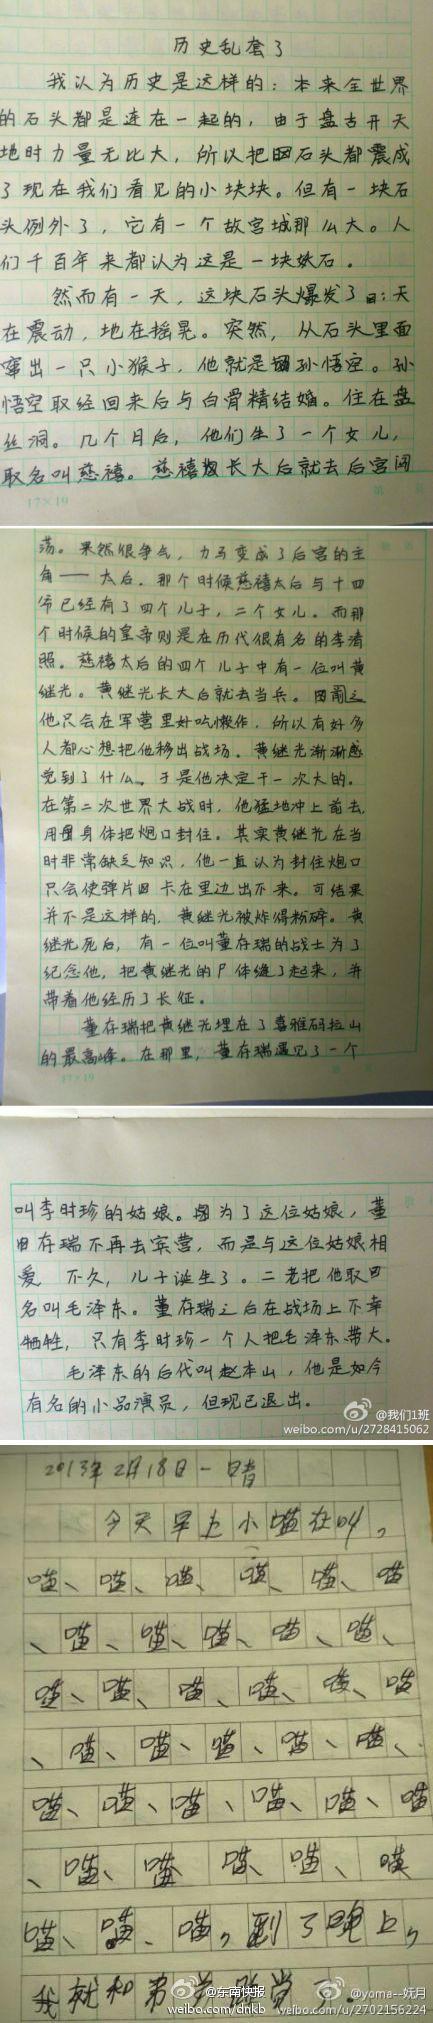 历史乱套了
我认为历史是这样的：本来全世界
的石头都是连在一起的，由于盘古开天
地时力量无比大，所以把石头都震成
了现在我们看见的小块块。但有一块石
头例外了，它有一个故宫城那么大。人
们千百年来都认为这是一块妖石。
然而有一天，这块石头爆发了：天
在震动，地在摇晃。突然，从石头里面
窜出一只小猴子，他就是孙悟空。孙
悟空取经回来后与白骨精结婚。住在盘
丝洞。几个月后，他们生了一个女儿，
取名叫慈禧。慈禧长大后就去后宫闯
17×19
荡。果然很争气，力马变成了后宫的主
角——太后。那个时候慈禧太后与十四
帝已经有了四个儿子，二个女儿。而那
个时候的皇帝则是在历代很有名的李清
照。慈禧太后的四个儿子中有一位叫黄
继光。黄继光长大后就去当兵。
他只会在军营里好吃懒作，所以有好多
人都心想把他移出战场。黄继光渐渐感
觉到了什么。于是他决定干一次大的。
在第二次世界大战时，他猛地冲上前去，
用身体把炮口封住。其实黄继光在当
时非常缺乏知识，他一直认为封住炮口
只会使弹片卡在里边出不来。可结果
并不是这样的，黄继光被炸得粉碎。黄
继光死后，有一位叫董存瑞的战士为了
纪念他，把黄继光的尸体缝了起来，并
带着他经历了长征。
董存瑞把黄继光埋在了喜雅码拉山
的最高峰。在那里，董存瑞遇见了一个
17×19
叫李时珍的姑娘。为了这位姑娘，董
存瑞不再去宾营，而是与这位姑娘相
爱，不久，儿子诞生了。二老把他取
名叫毛泽东。董存瑞之后在战场上不幸
牺牲，只有李时珍一个人把毛泽东带大。
毛泽东的后代叫赵本山，他是如今
有名的小品演员，但现已退出。
@我们1班
weibo.com/u/2728415062
2013年2月18日一晴
今天早上小喵在叫，
喵、喵、喵、喵、喵、喵
、喵、喵、喵、喵、喵、
喵、喵、喵、喵、喵、喵
、喵、喵、喵、喵、喵、
喵、喵、喵、喵、喵、喵
、喵、喵、喵、喵、喵
喵、喵、喵，到了晚上，
我就和弟弟睡觉了。
@东南快报
weibo.com/dnkb
@yoma--妖月
weibo.com/u/2702156224